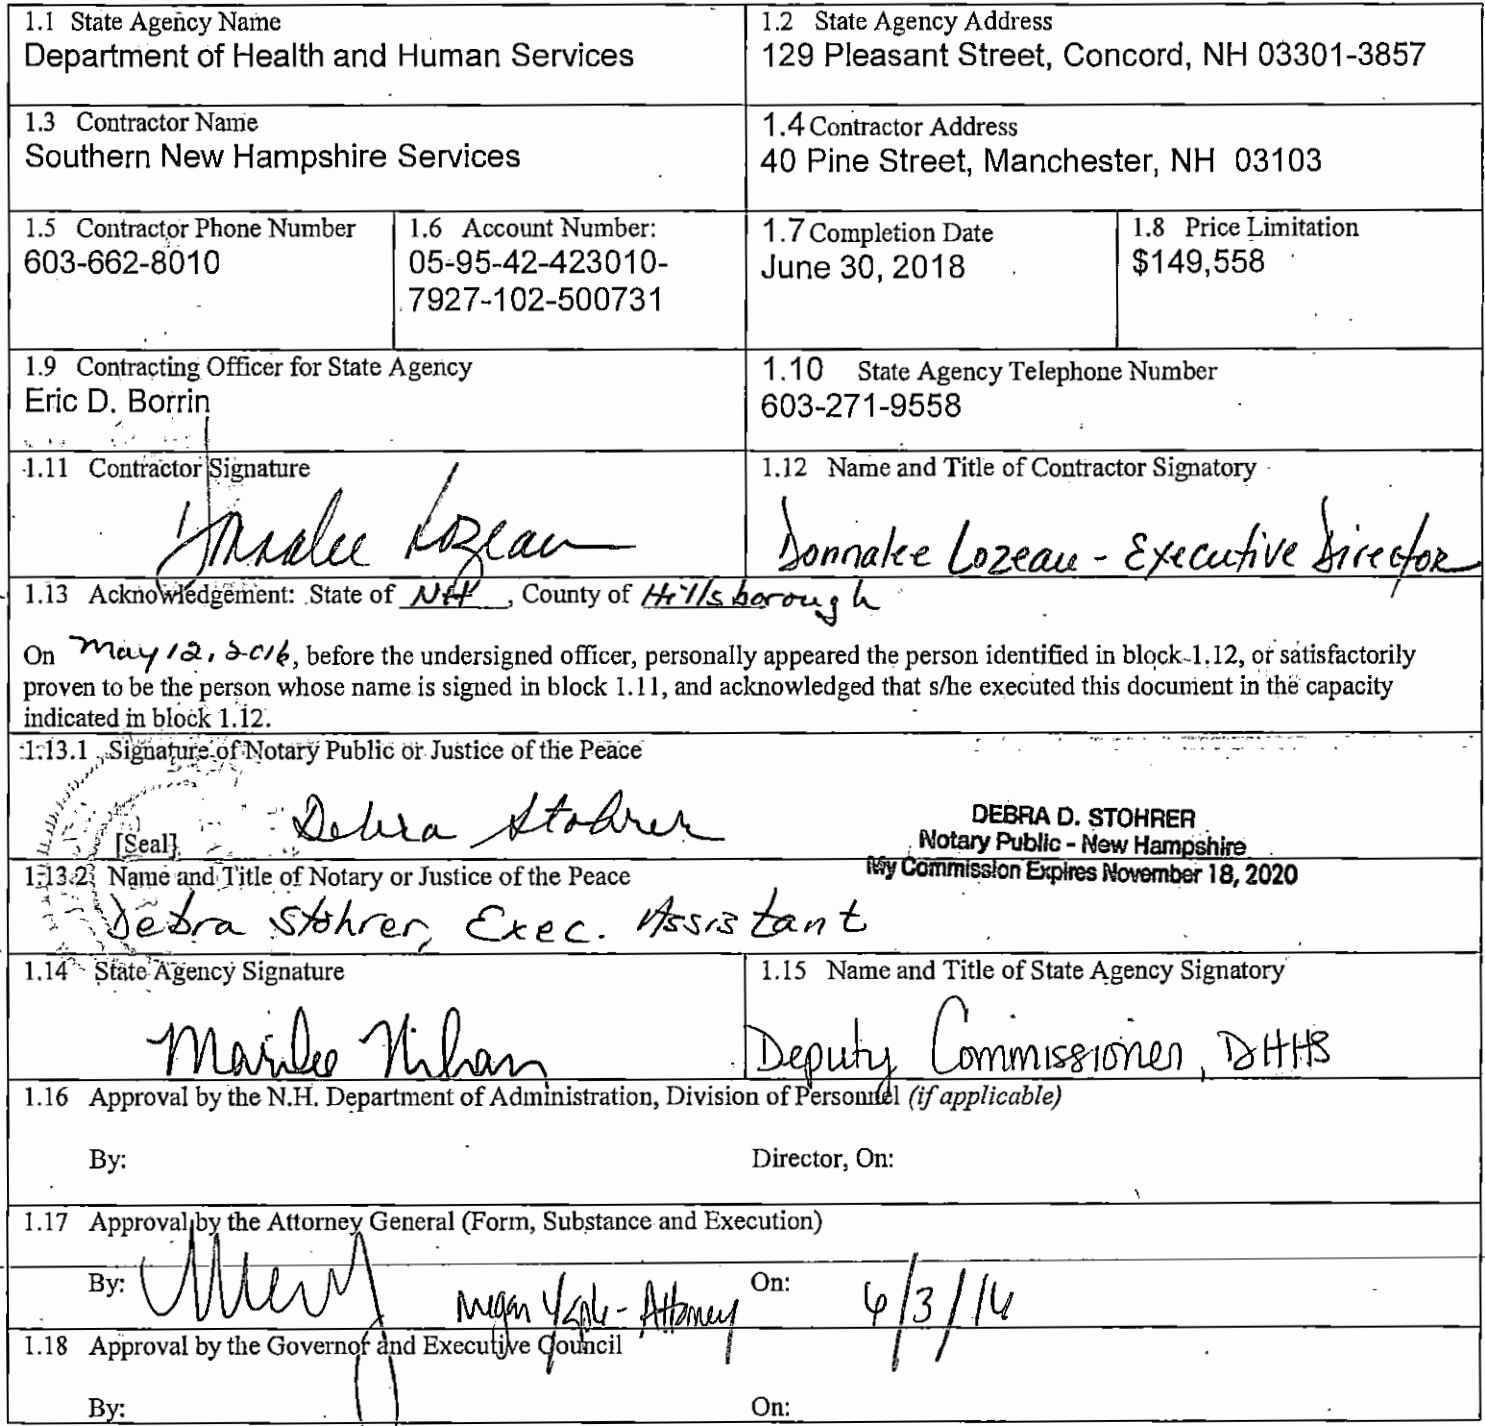 1.1 State Agency Name
Department of Health and Human Services
1.2 State Agency Address
129 Pleasant Street, Concord, NH 03301-3857
1.3 Contractor Name
Southern New Hampshire Services
1.4 Contractor Address
40 Pine Street, Manchester, NH 03103
1.5 Contractor Phone Number
603-662-8010
1.6 Account Number:
05-95-42-423010-
7927-102-500731
1.7 Completion Date
June 30, 2018
1.8 Price Limitation
$149,558
1.9 Contracting Officer for State Agency
Eric D. Borrin
1.10 State Agency Telephone Number
603-271-9558
1.11 Contractor Signature
Donnalee Lozeau
1.12 Name and Title of Contractor Signatory
Donnalee Lozeau - Executive Director
1.13 Acknowledgement: State of NH, County of Hillsborough
On May 12, 2016, before the undersigned officer, personally appeared the person identified in block 1.12, or satisfactorily
proven to be the person whose name is signed in block 1.11, and acknowledged that s/he executed this document in the capacity
indicated in block 1.12.
1.13.1 Signature of Notary Public or Justice of the Peace
Debra Stohrer
[Seal]
DEBRA D. STOHRER
Notary Public - New Hampshire
My Commission Expires November 18, 2020
1.13.2 Name and Title of Notary or Justice of the Peace
Debra Stohrer, Exec. Assistant
1.14 State Agency Signature
Marilee Nihan
1.15 Name and Title of State Agency Signatory
Deputy Commissioner, DHHS
1.16 Approval by the N.H. Department of Administration, Division of Personnel (if applicable)
By:
Director, On:
1.17 Approval by the Attorney General (Form, Substance and Execution)
By: Megan - Attorney
On: 6/3/16
1.18 Approval by the Governor and Executive Council
By:
On: